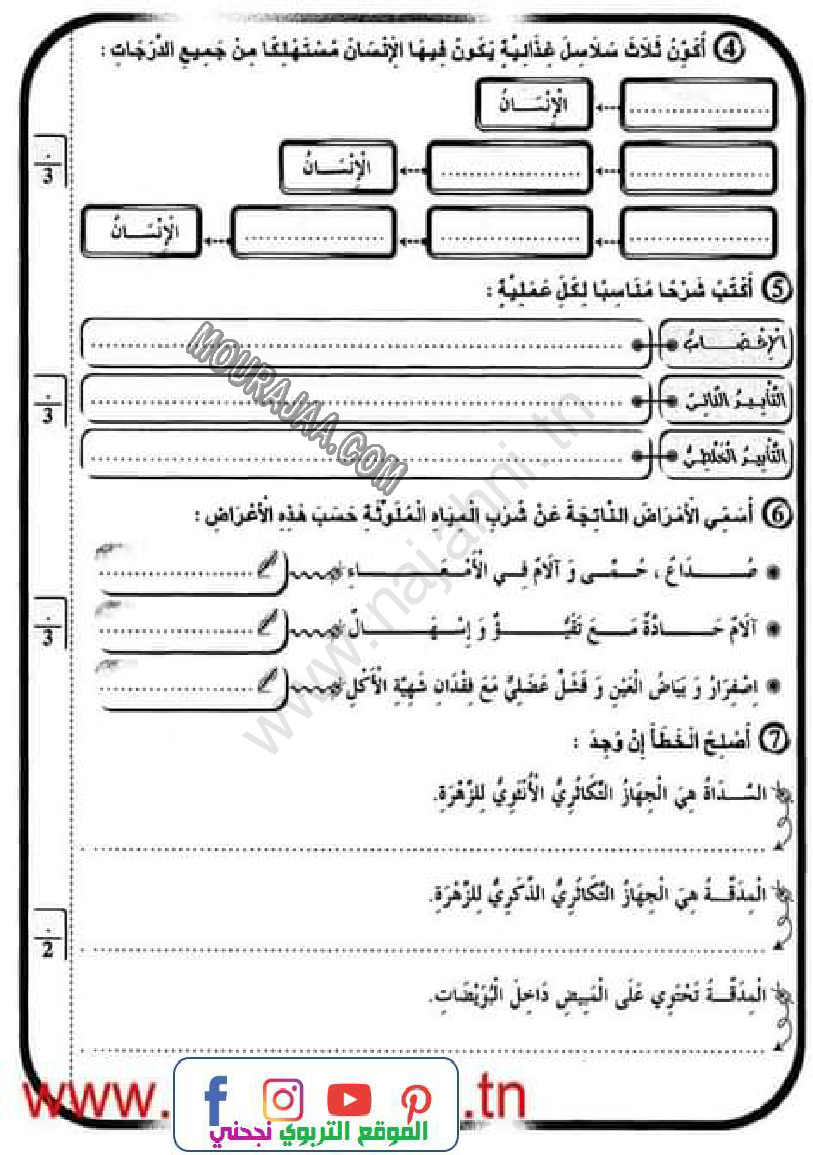 ④ أُكَوِّنُ ثَلَاثَ سَلَاسِلَ غِذَائِيَّةٍ يَكُونُ فِيهَا الْإِنْسَانُ مُسْتَهْلِكًا مِنْ جَمِيعِ الدَّرَجَاتِ :
.................... الْإِنْسَانُ
.................... .................... الْإِنْسَانُ
3
.................... .................... .................... الْإِنْسَانُ
⑤ أَكْتُبُ شَرْحًا مُنَاسِبًا لِكُلِّ عَمَلِيَّةٍ :
الْإِخْصَابُ ....................
التَّأْبِيرُ الذَّاتِيُّ ....................
3
التَّأْبِيرُ الْخَلْطِيُّ ....................
⑥ أُسَمِّي الْأَمْرَاضَ النَّاتِجَةَ عَنْ شُرْبِ الْمِيَاهِ الْمُلَوَّثَةِ حَسَبَ هَذِهِ الْأَعْرَاضِ :
• صُدَاعٌ ، حُمَّى وَ آلَامٌ فِي الْأَمْعَاءِ ....................
• آلَامٌ حَادَّةٌ مَعَ تَقَيُّؤٌ وَ إِسْهَالٌ ....................
3
• اِصْفِرَارُ وَ بَيَاضُ الْعَيْنِ وَ فَشَلٌ عَضَلِيٌّ مَعَ فِقْدَانِ شَهِيَّةِ الْأَكْلِ ....................
⑦ أُصْلِحُ الْخَطَأَ إِنْ وُجِدَ :
السَّدَاةُ هِيَ الْجِهَازُ التَّكَاثُرِيُّ الْأُنْثَوِيُّ لِلزَّهْرَةِ.
....................
الْمِدَقَّةُ هِيَ الْجِهَازُ التَّكَاثُرِيُّ الذَّكَرِيُّ لِلزَّهْرَةِ.
2
....................
الْمِدَقَّةُ تَحْتَوِي عَلَى الْمَبِيضِ دَاخِلَ الْبُوَيْضَاتِ.
....................
MOURAJAA.COM
www.najahni.tn
www. .tn
الموقع التربوي نجحني